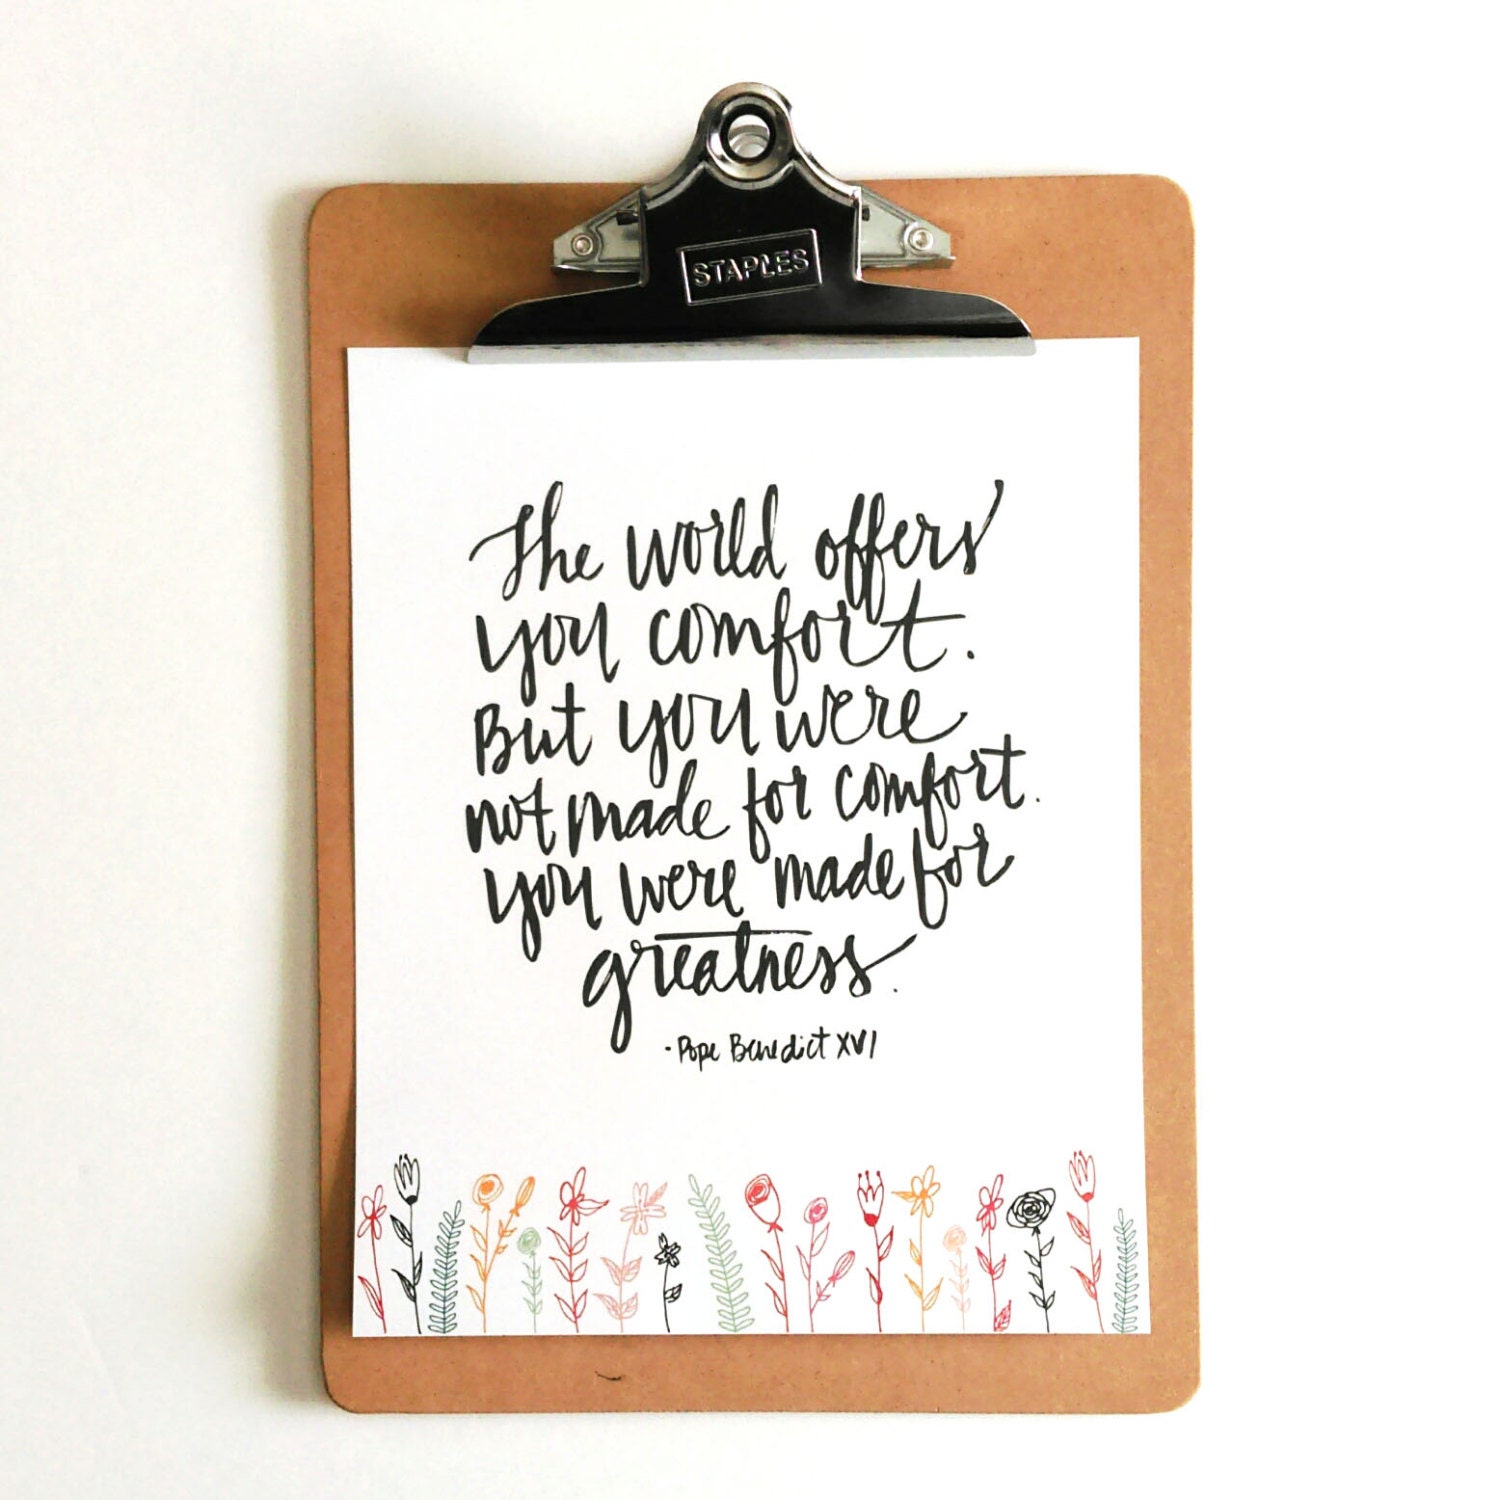 STAPLES
The world offers
you comfort.
But you were
not made for comfort.
you were made for
greatness.
- Pope Benedict XVI